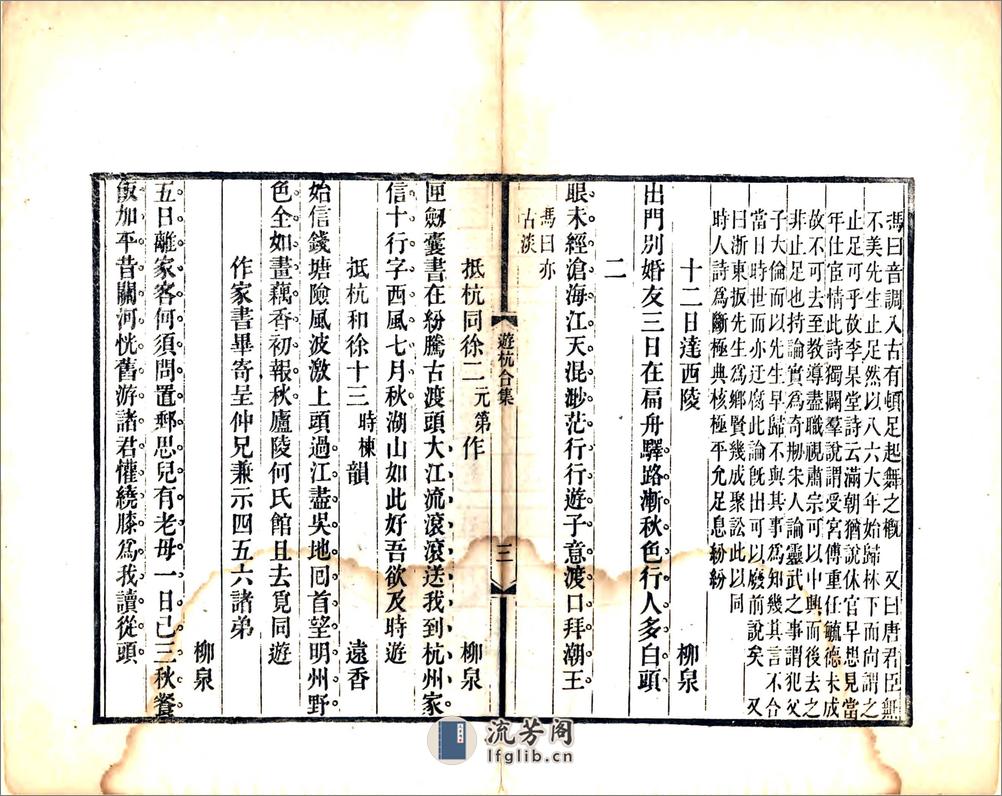 馮曰音調入古有頓足起舞之槪　又曰唐君臣無
不美先生止足然以八六大年始歸林下而向謂之
止足可乎故李杲堂詩云滿朝猶說休官早思見當
年仕宦情此詩獨闢羣說謂受宮傳重任毓德未成
故不可去至教導盡職視肅宗可以中興而後去之
非止足也持論實爲奇刱宋人論靈武之事謂犯父
子大倫而以先生早歸不與其事爲知幾其言不合
當日時世而亦迂腐此論旣出可以廢前說矣　又
曰浙東扳先生爲鄉賢幾成聚訟此以同
時人詩爲斷極典核極平允足息紛紛
十二日達西陵　柳泉
出門別婚友三日在扁舟驛路漸秋色行人多白頭
二
眼未經滄海江天混渺茫行行遊子意渡口拜潮王
馮曰亦
古淡
遊杭合集
三
抵杭同徐二元第作　柳泉
匣劍囊書在紛騰古渡頭大江流滾滾送我到杭州家
信十行字西風七月秋湖山如此好吾欲及時遊
抵杭和徐十三時棟韻　遠香
始信錢塘險風波激上頭過江盡吳地囘首望明州野
色全如畫藕香初報秋廬陵何氏館且去覓同遊
作家書畢寄呈仲兄兼示四五六諸弟
柳泉
五日離家客何須問置郵思兒有老母一日已三秋餐
飯加平昔關河恍舊游諸君懽繞膝爲我讀從頭
流芳阁
lfglib.cn